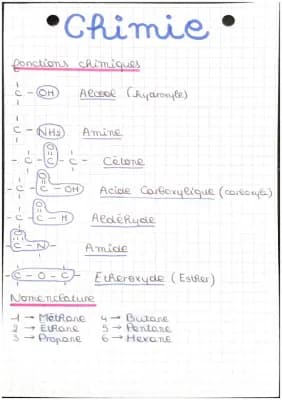 Chimie
fonctions chimiques
C - OH Alcool (hydroxyle)
C - NH₂ Amine
- C - C - C - Cétone
O
- C - C - OH Acide Carboxylique (carboxyle)
O
- C - C - H Aldéhyde
O
- C - N - Amide
O
- C - O - C - Etheroxyde (Esther)
Nomenclature
1 → Méthane 4 → Butane
2 → Ethane 5 → Pentane
3 → Propane 6 → Hexane